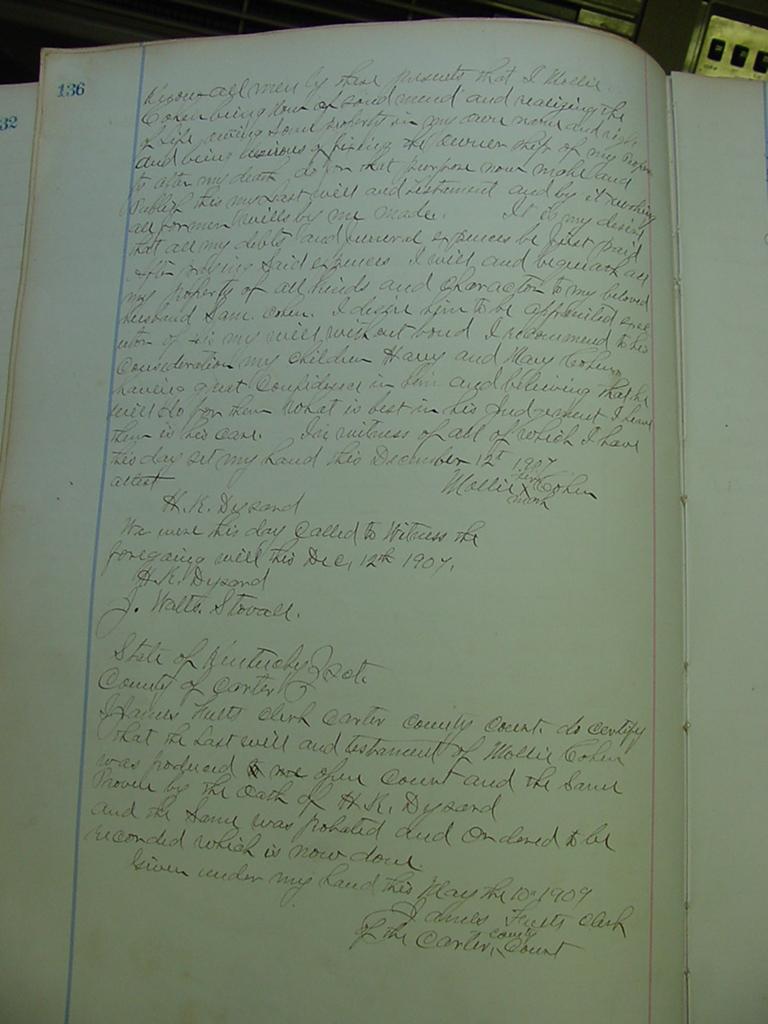 136
32
Know all men by these presents that I Mollie
Cohen being now of sound mend and realizing the
of Life owning some property in my own name and right
and being desirous of fixing the owner ship of my
to after my death do for that purpose now make and
Publish this my Last will and testament and by it revoking
all former wills by me made. It is my desire
that all my debts and funeral expences be first paid
After paying said expences I will and bequeath all
my property of all kinds and character to my beloved
husband Sam. Cohen. I desire him to be appointed exec
utor of this my will without bond I recommend to his
Consideration my children Harry and Mary Cohen
haveing great Confidence in him and believing that he
will do for them what is best in his Judgement I leave
them in his care. In witness of all of which I have
this day set my hand this December 12th 1907
attest Mollie her X mark Cohen
H. K. Dysard
We were this day Called to Witness the
foregoing will this Dec, 12th 1907.
H. K. Dysard
J. Watts. Stovall.
State of Kentucky } sct.
County of Carter }
I James Fults clerk Carter county Court. do certify
that the Last will and testament of Mollie Cohen
was produced open Court and the same
Proven by the Oath of H. K. Dysard
and the same was probated and Ordered to be
recorded which is now done.
Given under my hand this May the 10th 1909
James Fults clerk
of the Carter county Court